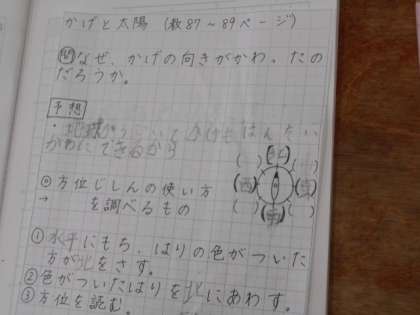 かげと太陽 (教87～89ページ)
問 なぜ、かげの向きがかわったの
だろうか。
予想
・地球がうごいてかげもはんたい
がわにできるから
(北)
(西) (東)
(南)
◎方位じしんの使い方
→ を調べるもの
①水平にもち、はりの色がついた
方が北をさす。
②色がついたはりを北にあわす。
③方位を読む。